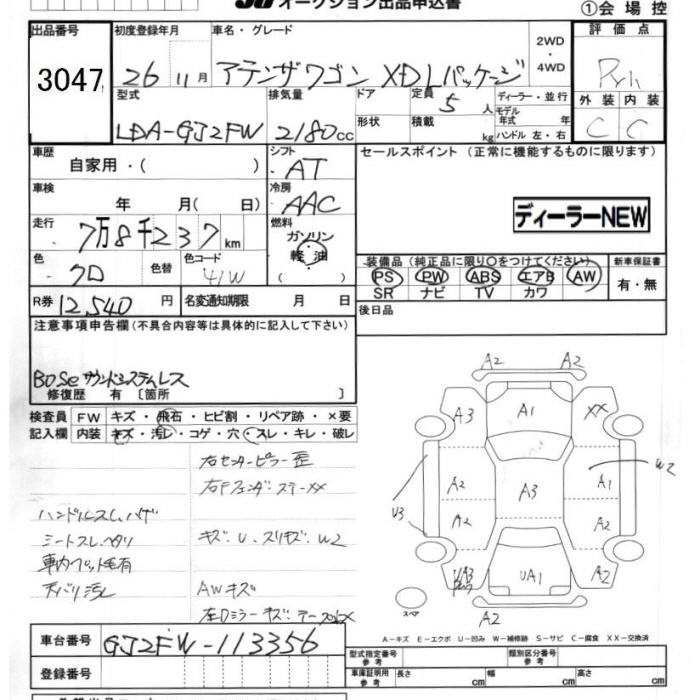 オークション出品申込書
①会場控
出品番号
3047
初度登録年月
26 11月
車名・グレード
アテンザワゴン XD Lパッケージ
2WD
・
4WD
評価点
外装 内装
C C
型式
LDA-GJ2FW
排気量
2180cc
ドア
形状
定員 5人
積載 kg
ディーラー・並行
モデル年式 年
ハンドル 左・右
車歴
自家用・( )
シフト
AT
セールスポイント (正常に機能するものに限ります)
車検
年 月( 日)
冷房
AAC
ディーラーNEW
走行
7万8千237km
燃料
ガソリン
軽油
( )
色
クロ
色替
色コード
41W
装備品(純正品に限り○をつけてください)
PS PW ABS エアB AW
SR ナビ TV カワ
新車保証書
有・無
R券 12,540円
名変通知期限 月 日
後日品
注意事項申告欄(不具合内容等は具体的に記入して下さい)
BOSEサウンドシステムレス
修復歴 有〔箇所 〕
検査員記入欄
FW キズ・飛石・ヒビ割・リペア跡・×要
内装 キズ・汚レ・コゲ・穴・スレ・キレ・破レ
右センターピラー歪
右Fフェンダーステー××
ハンドルスレ、ハゲ
シートスレ、ヘタリ
キズ・U、スリキズ・W2
車内ペット毛有
天バリ汚レ
AWキズ
左Dミラーキズ・テープ
A2 A2
A3 A1 XX
W2
A2 A3 A1
U3
A2 A2
UA3 UA1 A2
スペア
A2
A-キズ E-エクボ U-凹み W-補修跡 S-サビ C-腐食 XX-交換済
車台番号 GJ2FW-113356
登録番号
型式指定番号 参考
類別区分番号 参考
車庫証明用 参考 長さ cm 幅 cm 高さ cm